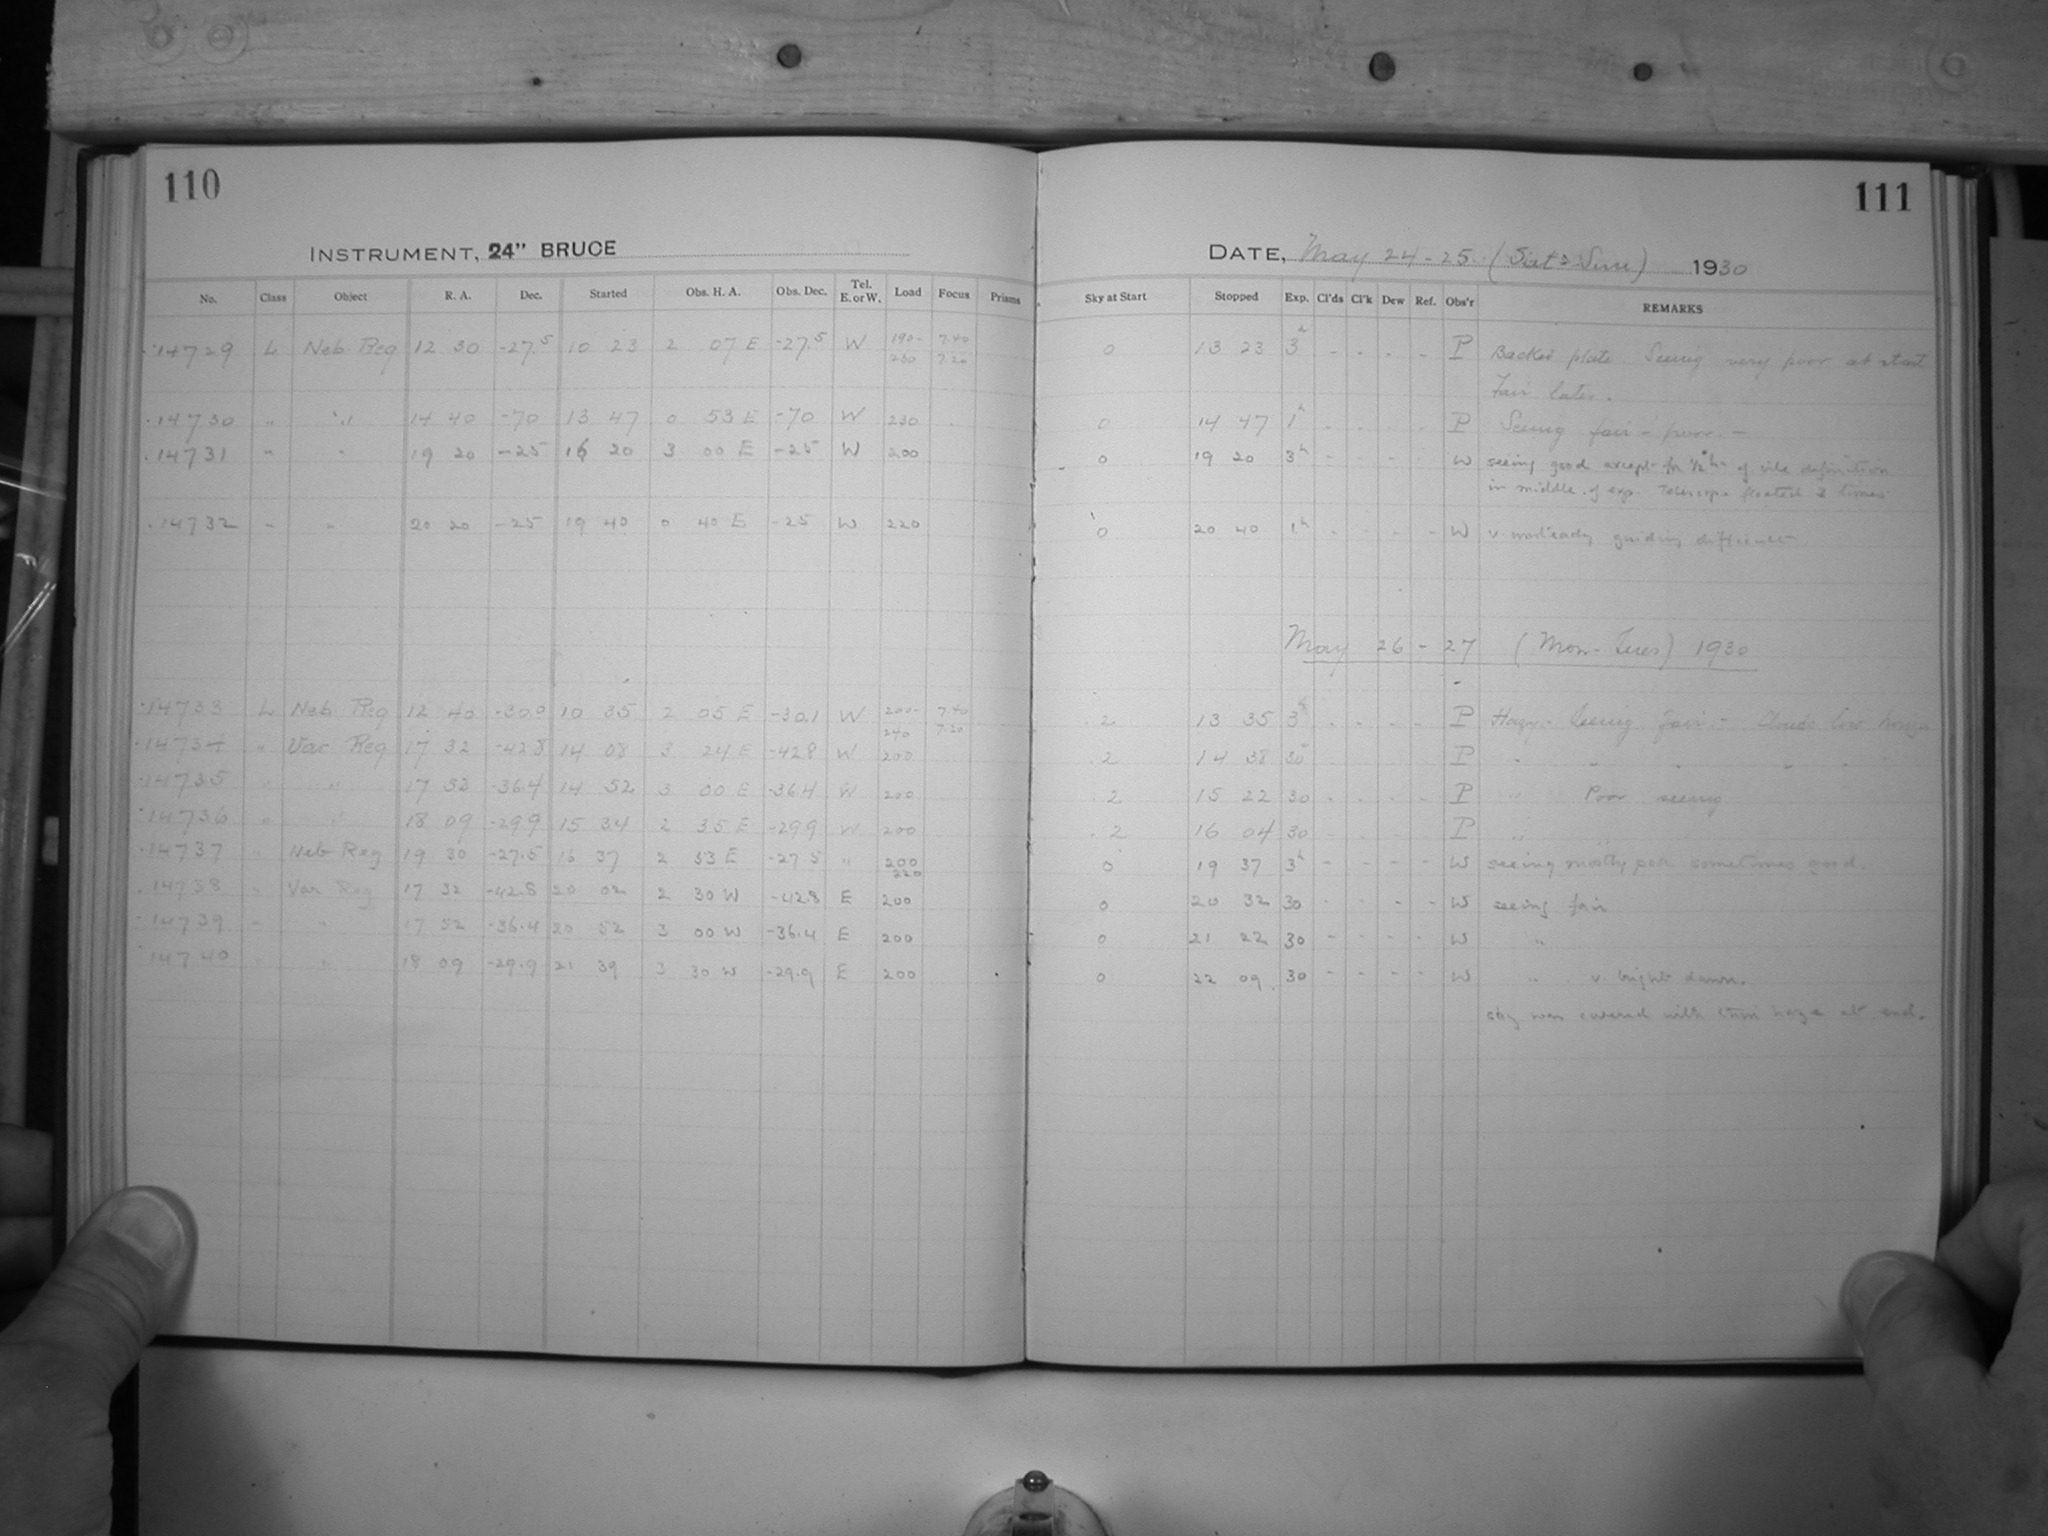 110
INSTRUMENT, 24" BRUCE
No. Class Object R. A. Dec. Started Obs. H. A. Obs. Dec. Tel. E. or W. Load Focus Prisms
14729 L Neb. Reg 12 30 -27.5 10 23 2 07 E -27.5 W 190- 7.40
230 7.20
14730 " " 14 40 -70 13 47 0 53 E -70 W 230
14731 " " 19 20 -25 16 20 3 00 E -25 W 200
14732 " " 20 20 -25 19 40 0 40 E -25 W 220
14733 L Neb Reg 12 40 -30.0 10 35 2 05 E -30.1 W 200- 7.40
240 7.20
14734 " Var Reg 17 32 -42.8 14 08 3 24 E -42.8 W 200
14735 " " 17 52 -36.4 14 52 3 00 E -36.4 W 200
14736 " " 18 09 -29.9 15 34 2 35 E -29.9 W 200
14737 " Neb Reg 19 30 -27.5 16 37 2 53 E -27.5 " 200
220
14738 " Var Reg 17 32 -42.8 20 02 2 30 W -42.8 E 200
14739 " " 17 52 -36.4 20 52 3 00 W -36.4 E 200
14740 " " 18 09 -29.9 21 39 3 30 W -29.9 E 200
111
DATE, May 24-25 (Sat-Sun) 1930
Sky at Start Stopped Exp. Cl'ds Cl'k Dew Ref. Obs'r REMARKS
0 13 23 3h - - - - P Backed plate. Seeing very poor at start
Fair later.
0 14 47 1h - - - - P Seeing fair - poor. -
0 19 20 3h - - - - W seeing good except for 1/2 h of vile definition
in middle of exp. Telescope floated 3 times
0 20 40 1h - - - - W v. unsteady guiding difficult
May 26-27 (Mon-Tues) 1930
2 13 35 3h - - - - P Hazy - Seeing fair - Clouds low
2 14 38 30 P " " " " " "
2 15 22 30 - - - - P " Poor seeing
2 16 04 30 - - - - P " "
0 19 37 3h - - - - W seeing mostly sometimes good.
0 20 32 30 - - - - W seeing fair
0 21 22 30 - - - - W "
0 22 09 30 - - - - W " v. bright dawn.
sky was covered with thin haze at end.